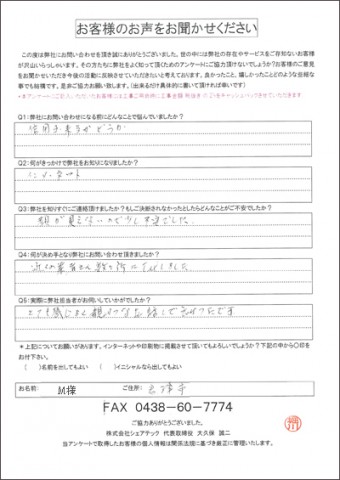 お客様のお声をお聞かせください
この度は弊社にお問い合わせを頂き誠にありがとうございました。世の中には弊社の存在やサービスをご存知ないお客様
が沢山いらっしゃいます。その方たちに弊社をよく知って頂くためのアンケートにご協力頂けないでしょうか?お客様のご意見
をお聞かせいただき今後の活動に反映させていただきたいと考えております。良かったこと、嬉しかったことどのような些細な
事でも結構です。是非ご協力お願い致します。(出来るだけ具体的に書いて頂ければ幸いです)
Q1:弊社にお問い合わせになる前にどんなことで悩んでいましたか?
信用出来るかどうか
Q2:何がきっかけで弊社をお知りになりましたか?
インターネット
Q3:弊社を知りすぐにご連絡頂けましたか?もしご決断されなかったとしたらどんなことがご不安でしたか?
顔が見えないので少し不安でした。
Q4:何が決め手となり弊社にお問い合わせ頂きましたか?
Q5:実際に弊社担当者がお伺いしていかがでしたか?
*上記についてお願いがあります。インターネットや印刷物に掲載させて頂いてもよろしいでしょうか?下記の中から〇印を
お付け下さい。
( )名前を出してもよい ( )イニシャルなら出してもよい
お名前: M様 ご住所:
FAX 0438-60-7774
ご協力ありがとうございました。
株式会社シェアテック 代表取締役 大久保 誠二
当アンケートで取得したお客様の個人情報は関係法規に基づき厳正に管理いたします。